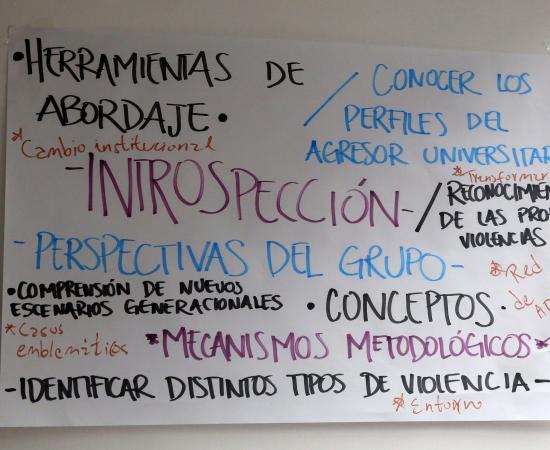 •HERRAMIENTAS DE
ABORDAJE•
/ CONOCER LOS
PERFILES DEL
AGRESOR UNIVERSITAR
*Cambio institucional
*Transformar
-INTROSPECCIÓN-
/ RECONOCIMIEN
DE LAS PRO
VIOLENCIAS
-PERSPECTIVAS DEL GRUPO-
*Red
de
•COMPRENSIÓN DE NUEVOS
ESCENARIOS GENERACIONALES
•CONCEPTOS•
*Casos
emblemáticos
*MECANISMOS METODOLÓGICOS*
-IDENTIFICAR DISTINTOS TIPOS DE VIOLENCIA-
*Entorno